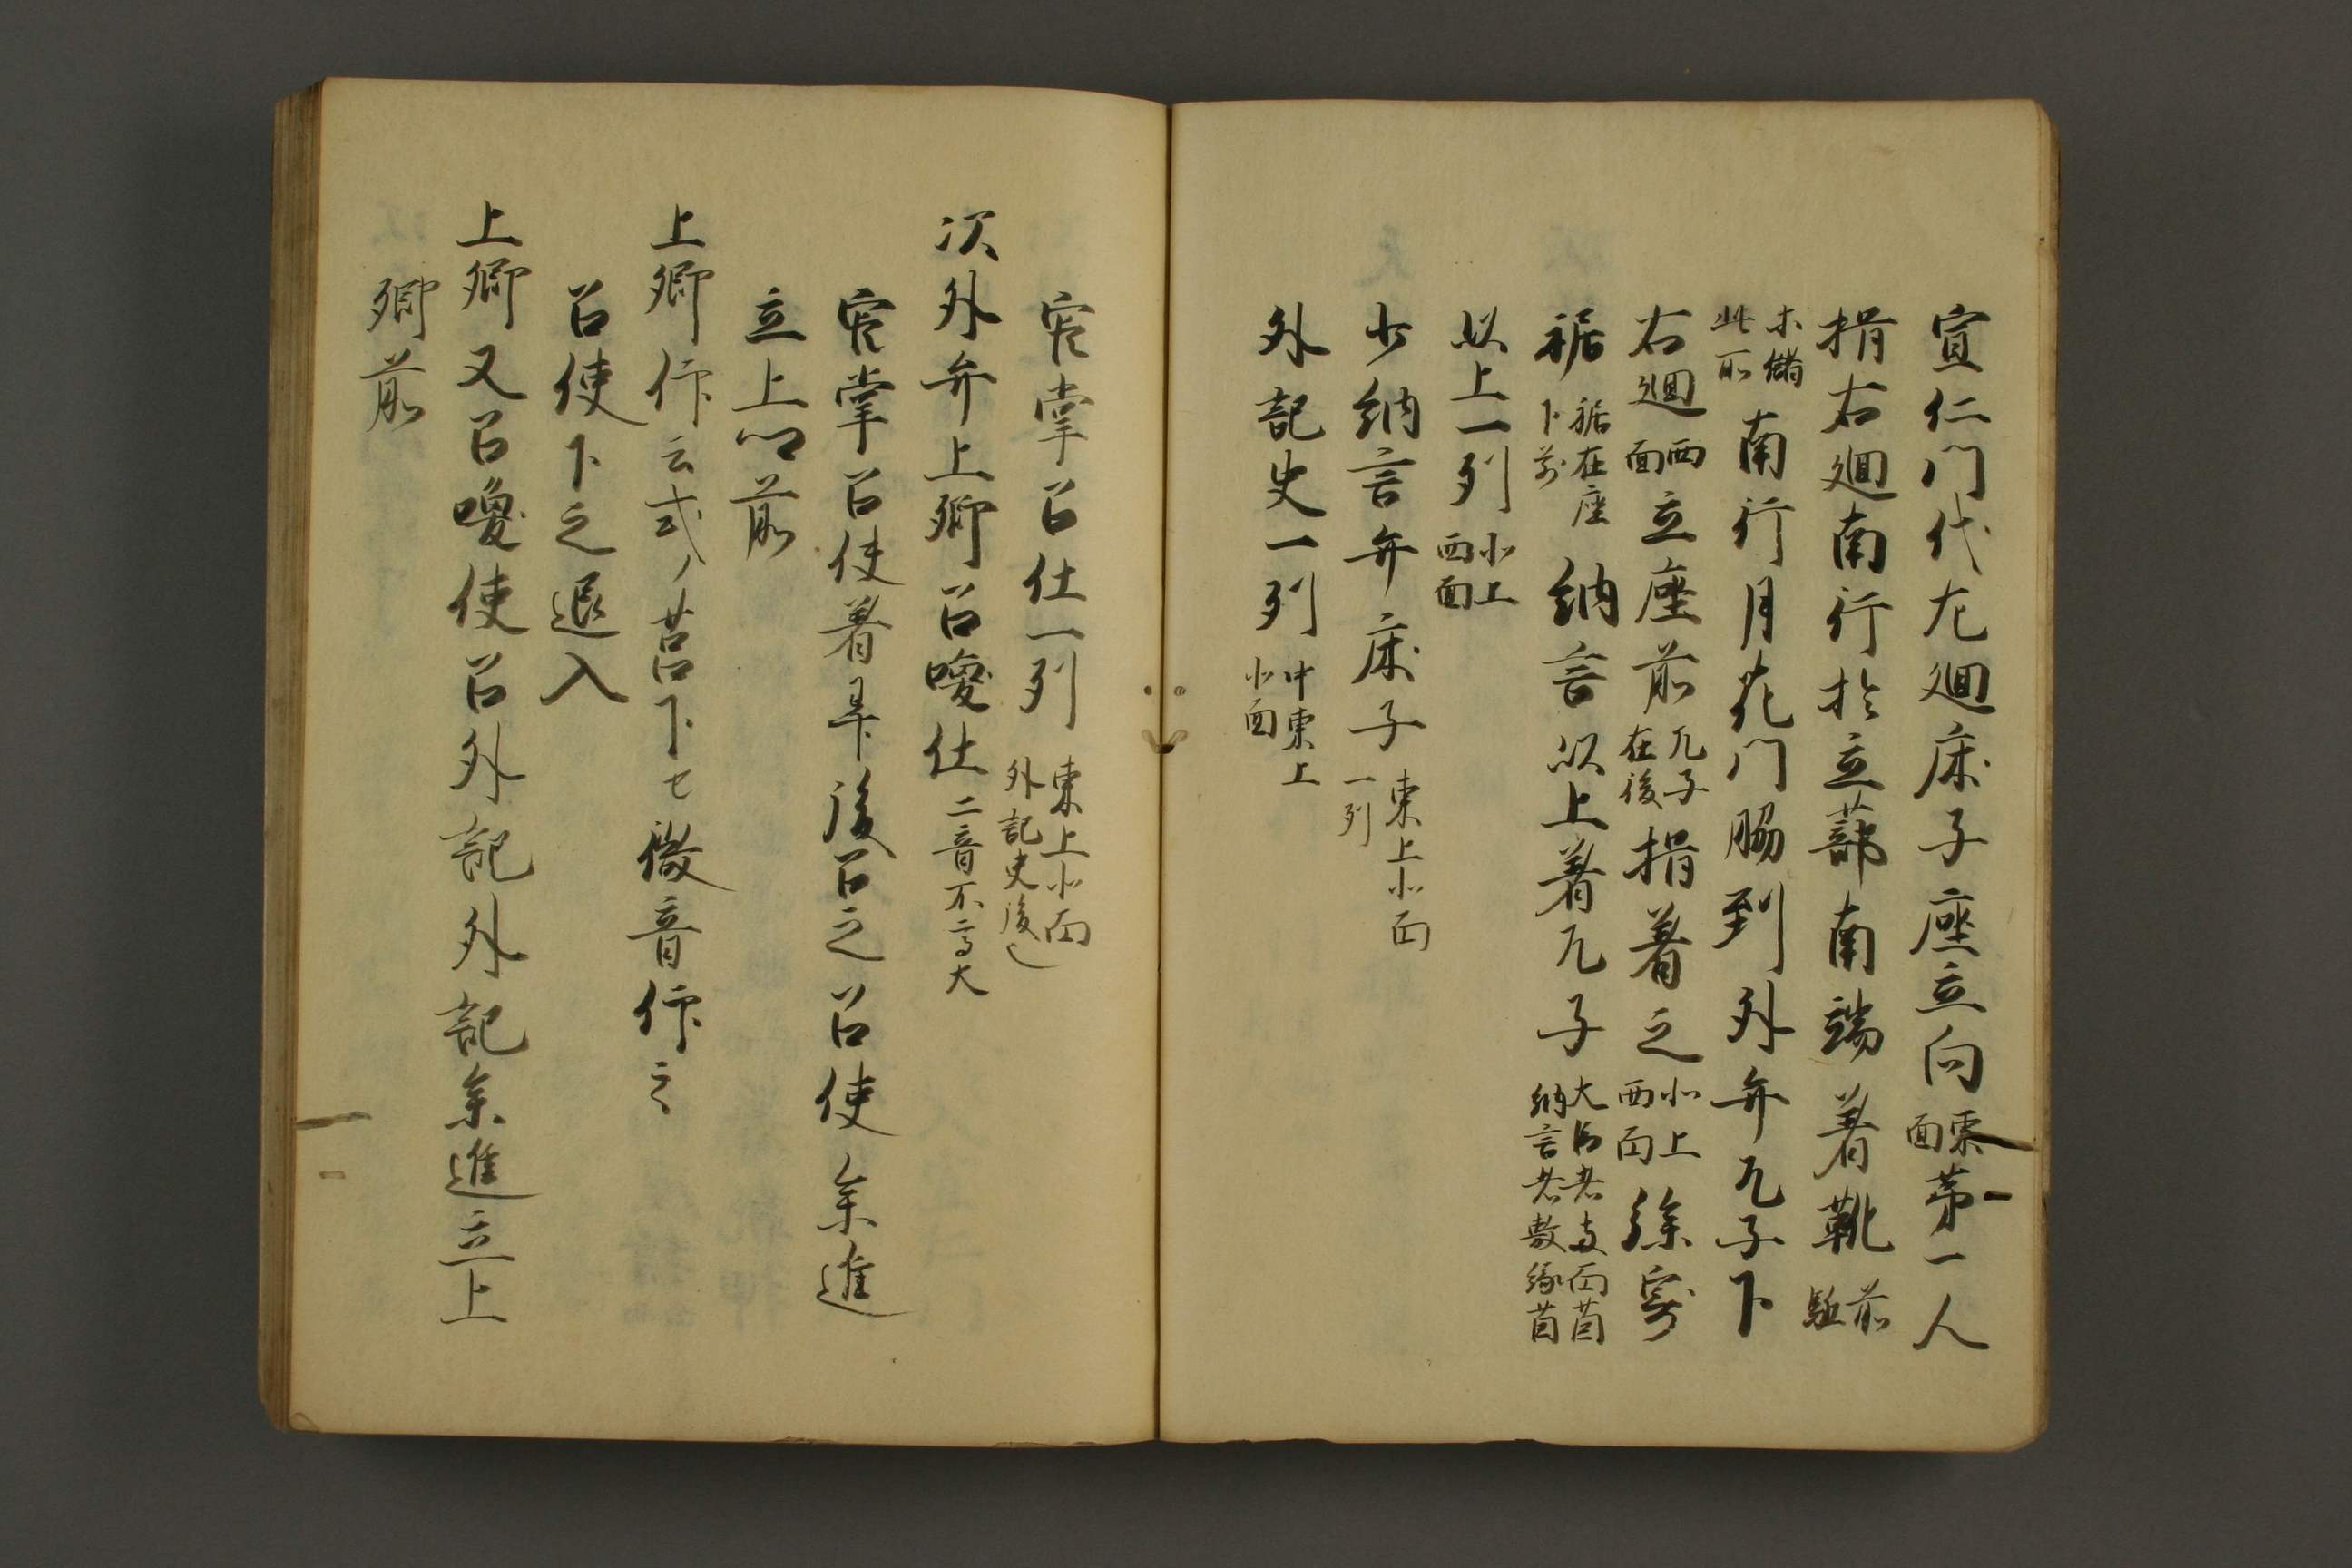 宣仁門代尤廻床子座立向東面第一人
揖右廻南行於立蔀南端着靴前駈
未儲此所南行月花門腋到外弁兀子下
右廻西面立座前兀子在後揖着之北上西面徐寄
裾裾在座下前納言以上着兀子大臣者両面茵納言者敷縁茵
以上一列北上西面
少納言弁床子東上北面一列
外記史一列中東上北面
官掌召仕一列東上北面外記史後也
次外弁上卿召喚仕二音不高大
官掌召使着畢後召之召使参進
立上卿前
上卿仰云式ノ莒下セ微音仰之
召使下之退入
上卿又召喚使召外記外記参進立上
卿前